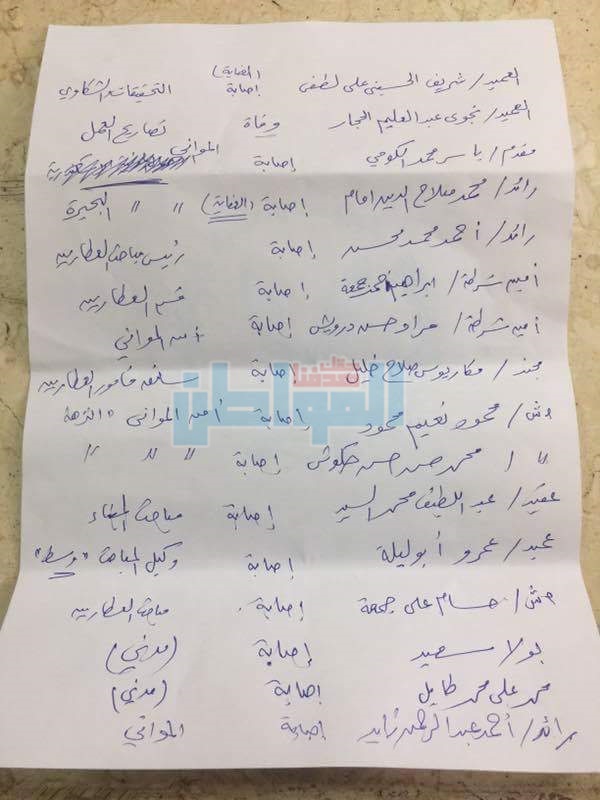 العميد/ شريف الحسيني على لطفي إصابة (العناية) التحقيقات والشكاوي
العميد/ نجوى عبد العليم الحجار وفاة تصاريح العمل
مقدم/ ياسر محمد الكومي إصابة الموانى
رائد/ محمد صلاح الدين امام إصابة (العناية) " " البحيرة
رائد/ أحمد محمد محسن إصابة رئيس مباحث العطارين
أمين شرطة/ ابراهيم جمعة إصابة قسم العطارين
امين شرطة/ مراد حسن درويش إصابة أمن المواني
مجند/ مكاريوس صلاح خليل إصابة سائق مأمور العطارين
وش/ محمود نعيم محمود إصابة أمن الموانى "النزهة"
" / محمد حسن حسن إصابة " " "
عقيد/ عبد اللطيف محمد السيد إصابة مباحث الميناء
عميد/ عمرو أبوليلة إصابة وكيل المباحث "وسط"
وش/ حسام على جمعة إصابة مباحث العطارين
بولا سعيد إصابة (مدني)
محمد على محمد طايل إصابة (مدني)
رائد/ أحمد عبد الرحمن زايد إصابة المواني
المواطن